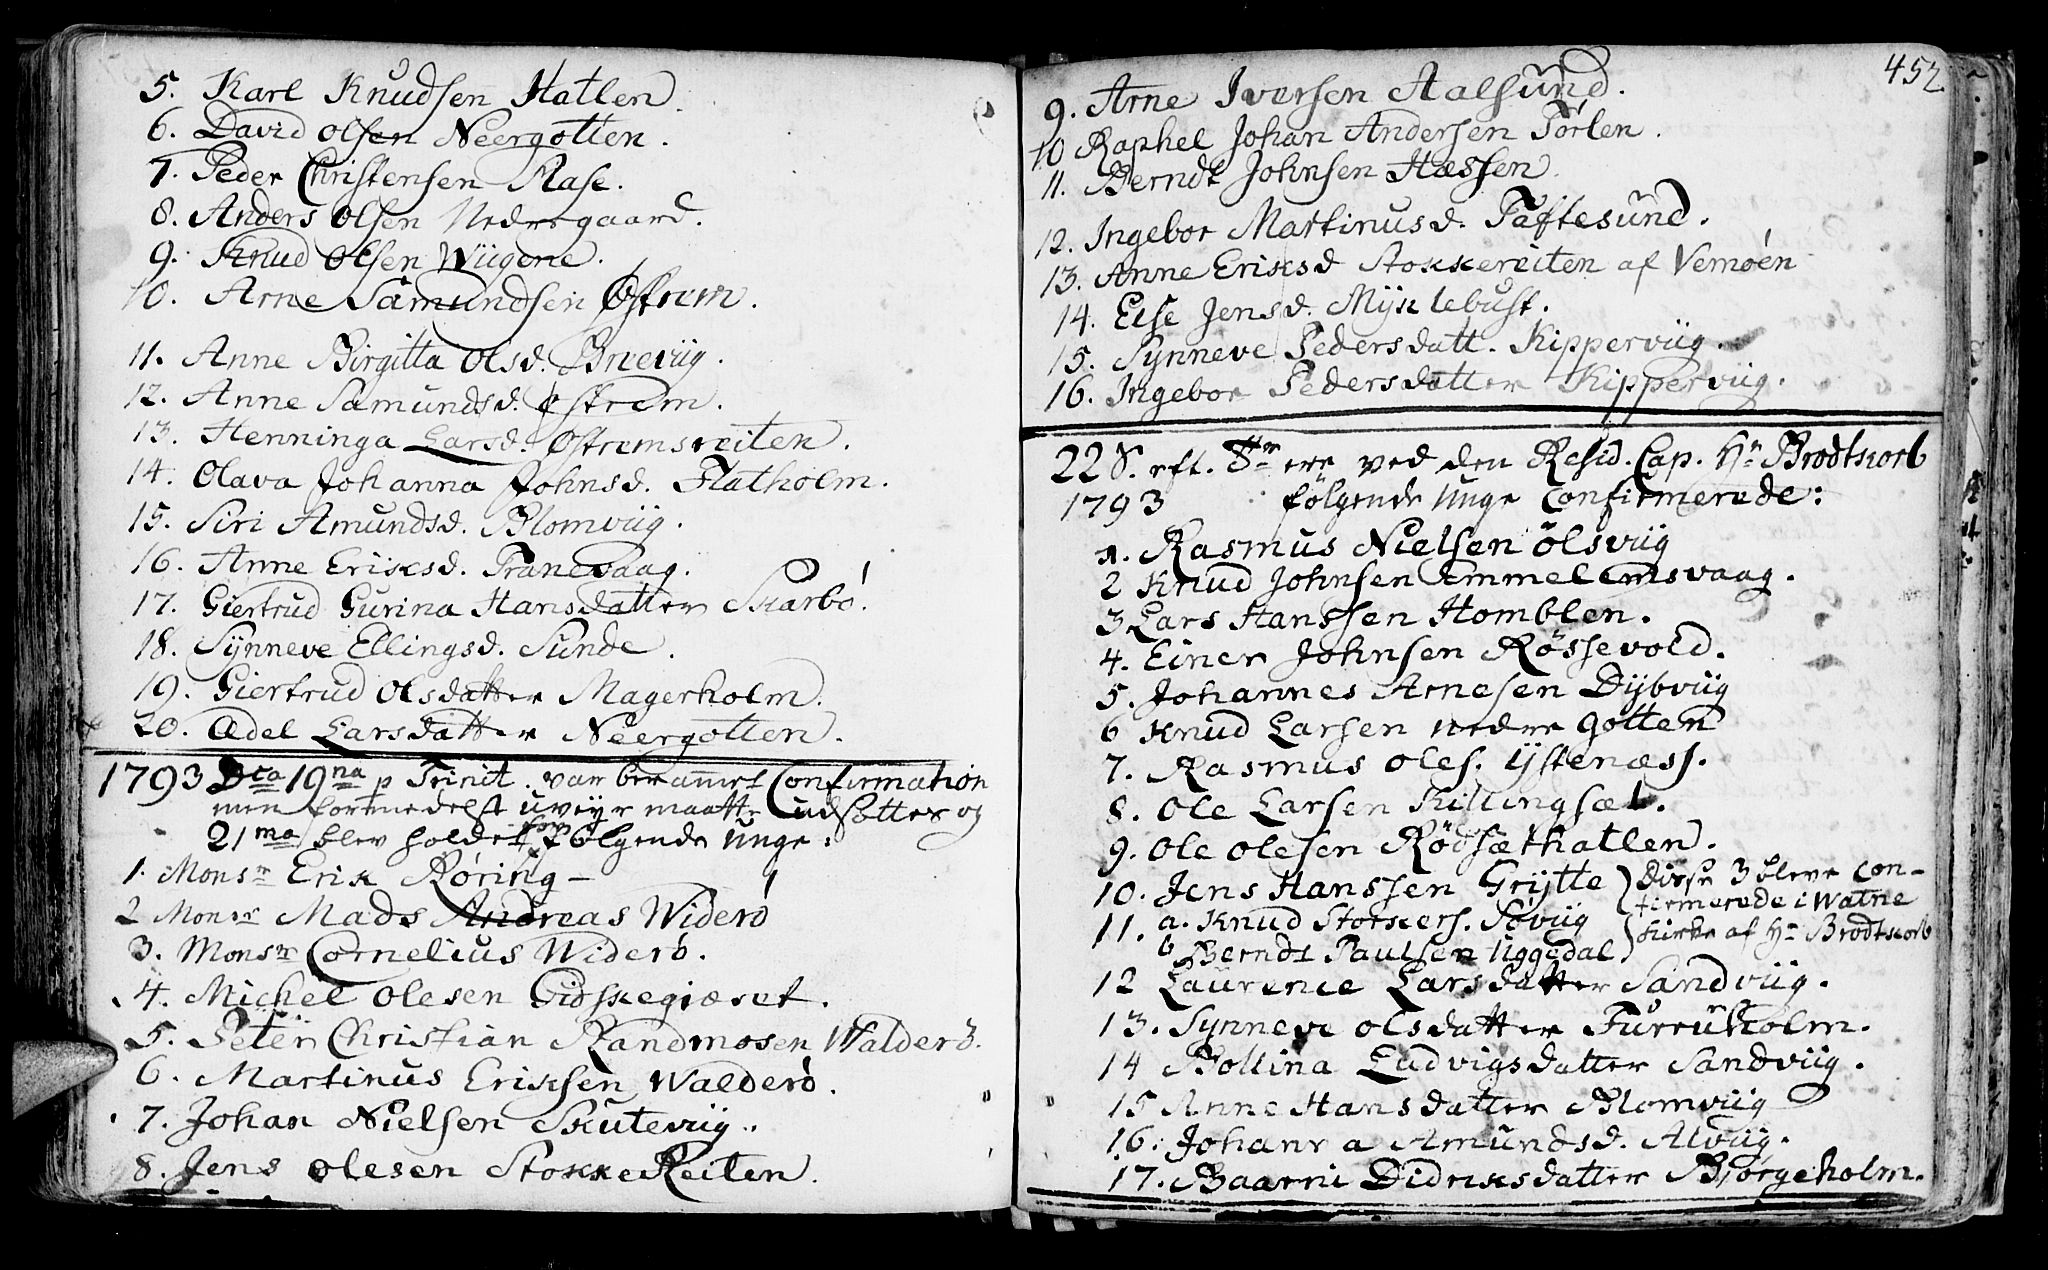 5. Karl Knudsen Hatlen.
6. David Olsen Neergotten.
7. Peder Christensen Aase.
8. Anders Olsen Nedregaard.
9. Knud Olsen Wiigene.
10. Arne Samundsen Østrem.
11. Anne Birgitta Olsd. Brevüg.
12. Anne Samundsd. Østrem.
13. Henninga Larsd. Østremsreiten.
14. Olava Johanna Johnsd. Flatholm.
15. Siri Amundsd. Blomvüg.
16. Anne Eriksd. Tranevaag.
17. Giertrud Gurina Hansdatter Skarbö.
18. Synneve Ellingsd. Sunde.
19. Giertrud Olsdatter Magerholm.
20. Ædel Larsdatter Neergotten.
1793 Dca 19na p Trinit. var beramet Confirmation
men formedelst uveyr maatte udsættes og
21ma blev holdet for følgende Unge:
1. Monsr Erik Røring –
2 Monsr Mads Andreas Widerö
3. Monsr Cornelius Widerö.
4. Michel Olesen Gidskegiæret.
5. Peter Christian Randmosen Walderö.
6. Martinus Eriksen Walderö.
7. Johan Nielsen Skutevüg.
8. Jens Olesen StokkeReiten.
452
9. Arne Iversen Aalsund.
10 Raphel Johan Andersen Törlen.
11. Berndt Johnsen Hæssen.
12. Ingebor Martinusd. Taftesund.
13. Anne Eriksd Stokkereiten af Vemöen
14. Else Jensd. Myklebust.
15. Synneve Pedersdatt. Kippervüg.
16. Ingebor Pedersdatter Kippervüg.
22 S. eft. Tr ere ved den Resid. Cap. Hr Brodtkorb
1793 følgende Unge Confirmerede:
1. Rasmus Nielsen Ölsvüg
2 Knud Johnsen Emmelemsvaag.
3 Lars Hanssen Homblen.
4. Einer Johnsen Røssevold.
5. Johannes Arnesen Dybvüg
6 Knud Larsen Nedre Gotten
7. Rasmus Oles. Ystenæss.
8. Ole Larsen Killingsæt.
9. Ole Olesen Rödsæthatlen.
10. Jens Hanssen Grytte } Disse 3 bleve Con-
firmerede i Watne
11. a. Knud Storkers. Sövüg } Kirke af Hr Brodtkorb
b Berndt Paulsen Uggedal
12 Laurence Larsdatter Sandvüg.
13. Synneve Olsdatter Furrunholm.
14 Bollina Ludvigsdatter Sandvüg.
15 Anne Hansdatter Blomvüg
16. Johanna Amundsd. Alvüg.
17. Baarni Didriksdatter Bjørgeholm.